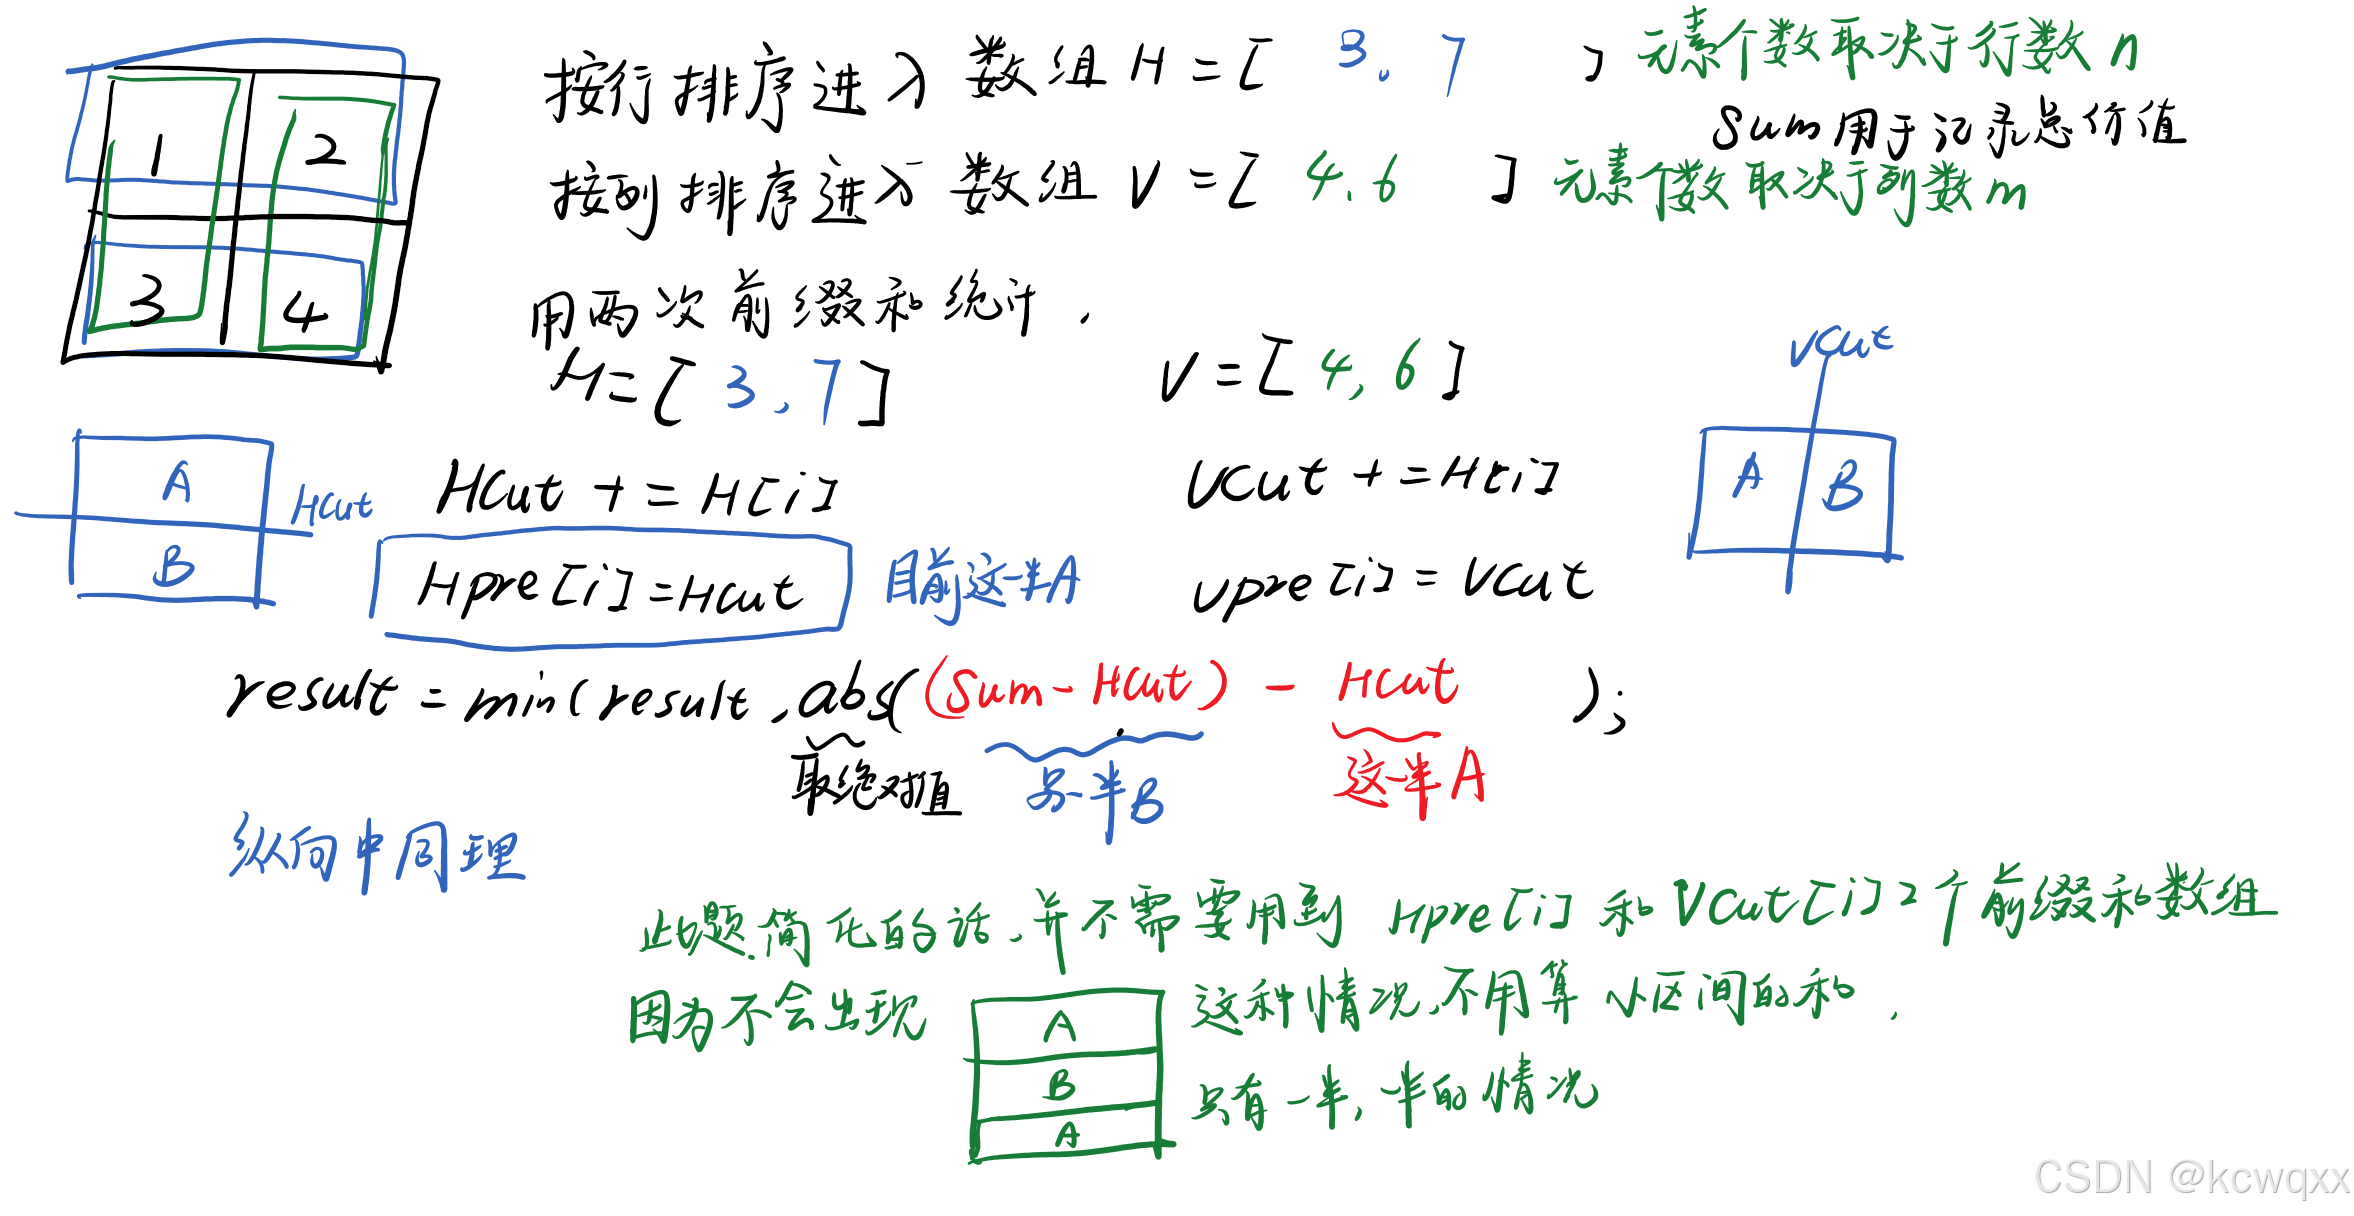 1 2
3 4
按行排序进入数组 H = [ 3, 7 ] 元素个数取决于行数 n
Sum用于记录总价值
按列排序进入数组 V = [ 4. 6 ] 元素个数取决于列数 m
用两次前缀和统计.
H = [ 3, 7 ]
V = [ 4, 6 ]
A
B
HCut
HCut += H[i]
VCut += H[i]
vCut
A B
Hpre[i] = HCut 目前这一半A
vpre[i] = VCut
result = min(result, abs((Sum-HCut) - HCut );
取绝对值 另一半B 这一半A
纵向中同理
此题简化的话,并不需要用到 Hpre[i] 和 VCut[i] 2个前缀和数组
因为不会出现 这种情况,不用算小区间的和.
A
B
A
只有一半,一半的情况
CSDN @kcwqxx